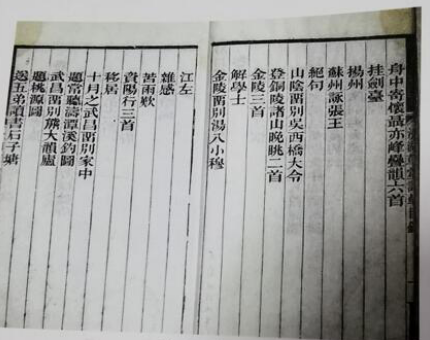 舟中寄懷聶亦峰疊韻六首
挂劍臺
揚州
蘇州詠張王
絕句
山陰留別吳西橋大令
登銅陵諸山晚眺二首
金陵三首
解學士
金陵留別湯八小穆
江左
雜感
苦雨歎
資陽行三首
移居
十月之武昌留別家中
題常聽濤潭溪釣圖
武昌留別熊大韻廬
題桃源圖
送五弟
石子塘